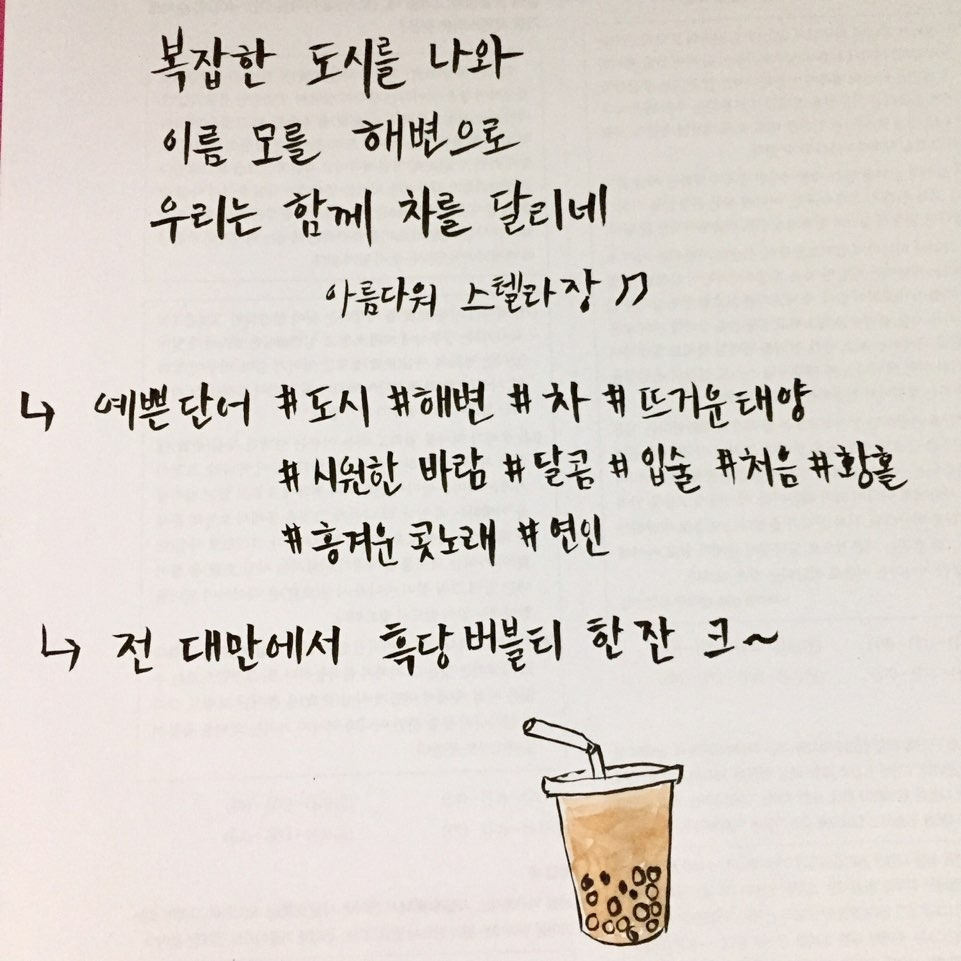 복잡한 도시를 나와
이름 모를 해변으로
우리는 함께 차를 달리네
아름다워 스텔라장 ♫
↳ 예쁜단어 #도시 #해변 #차 #뜨거운태양
#시원한 바람 #달콤 #입술 #처음 #황홀
#흥겨운 콧노래 #연인
↳ 전 대만에서 흑당버블티 한잔 크~